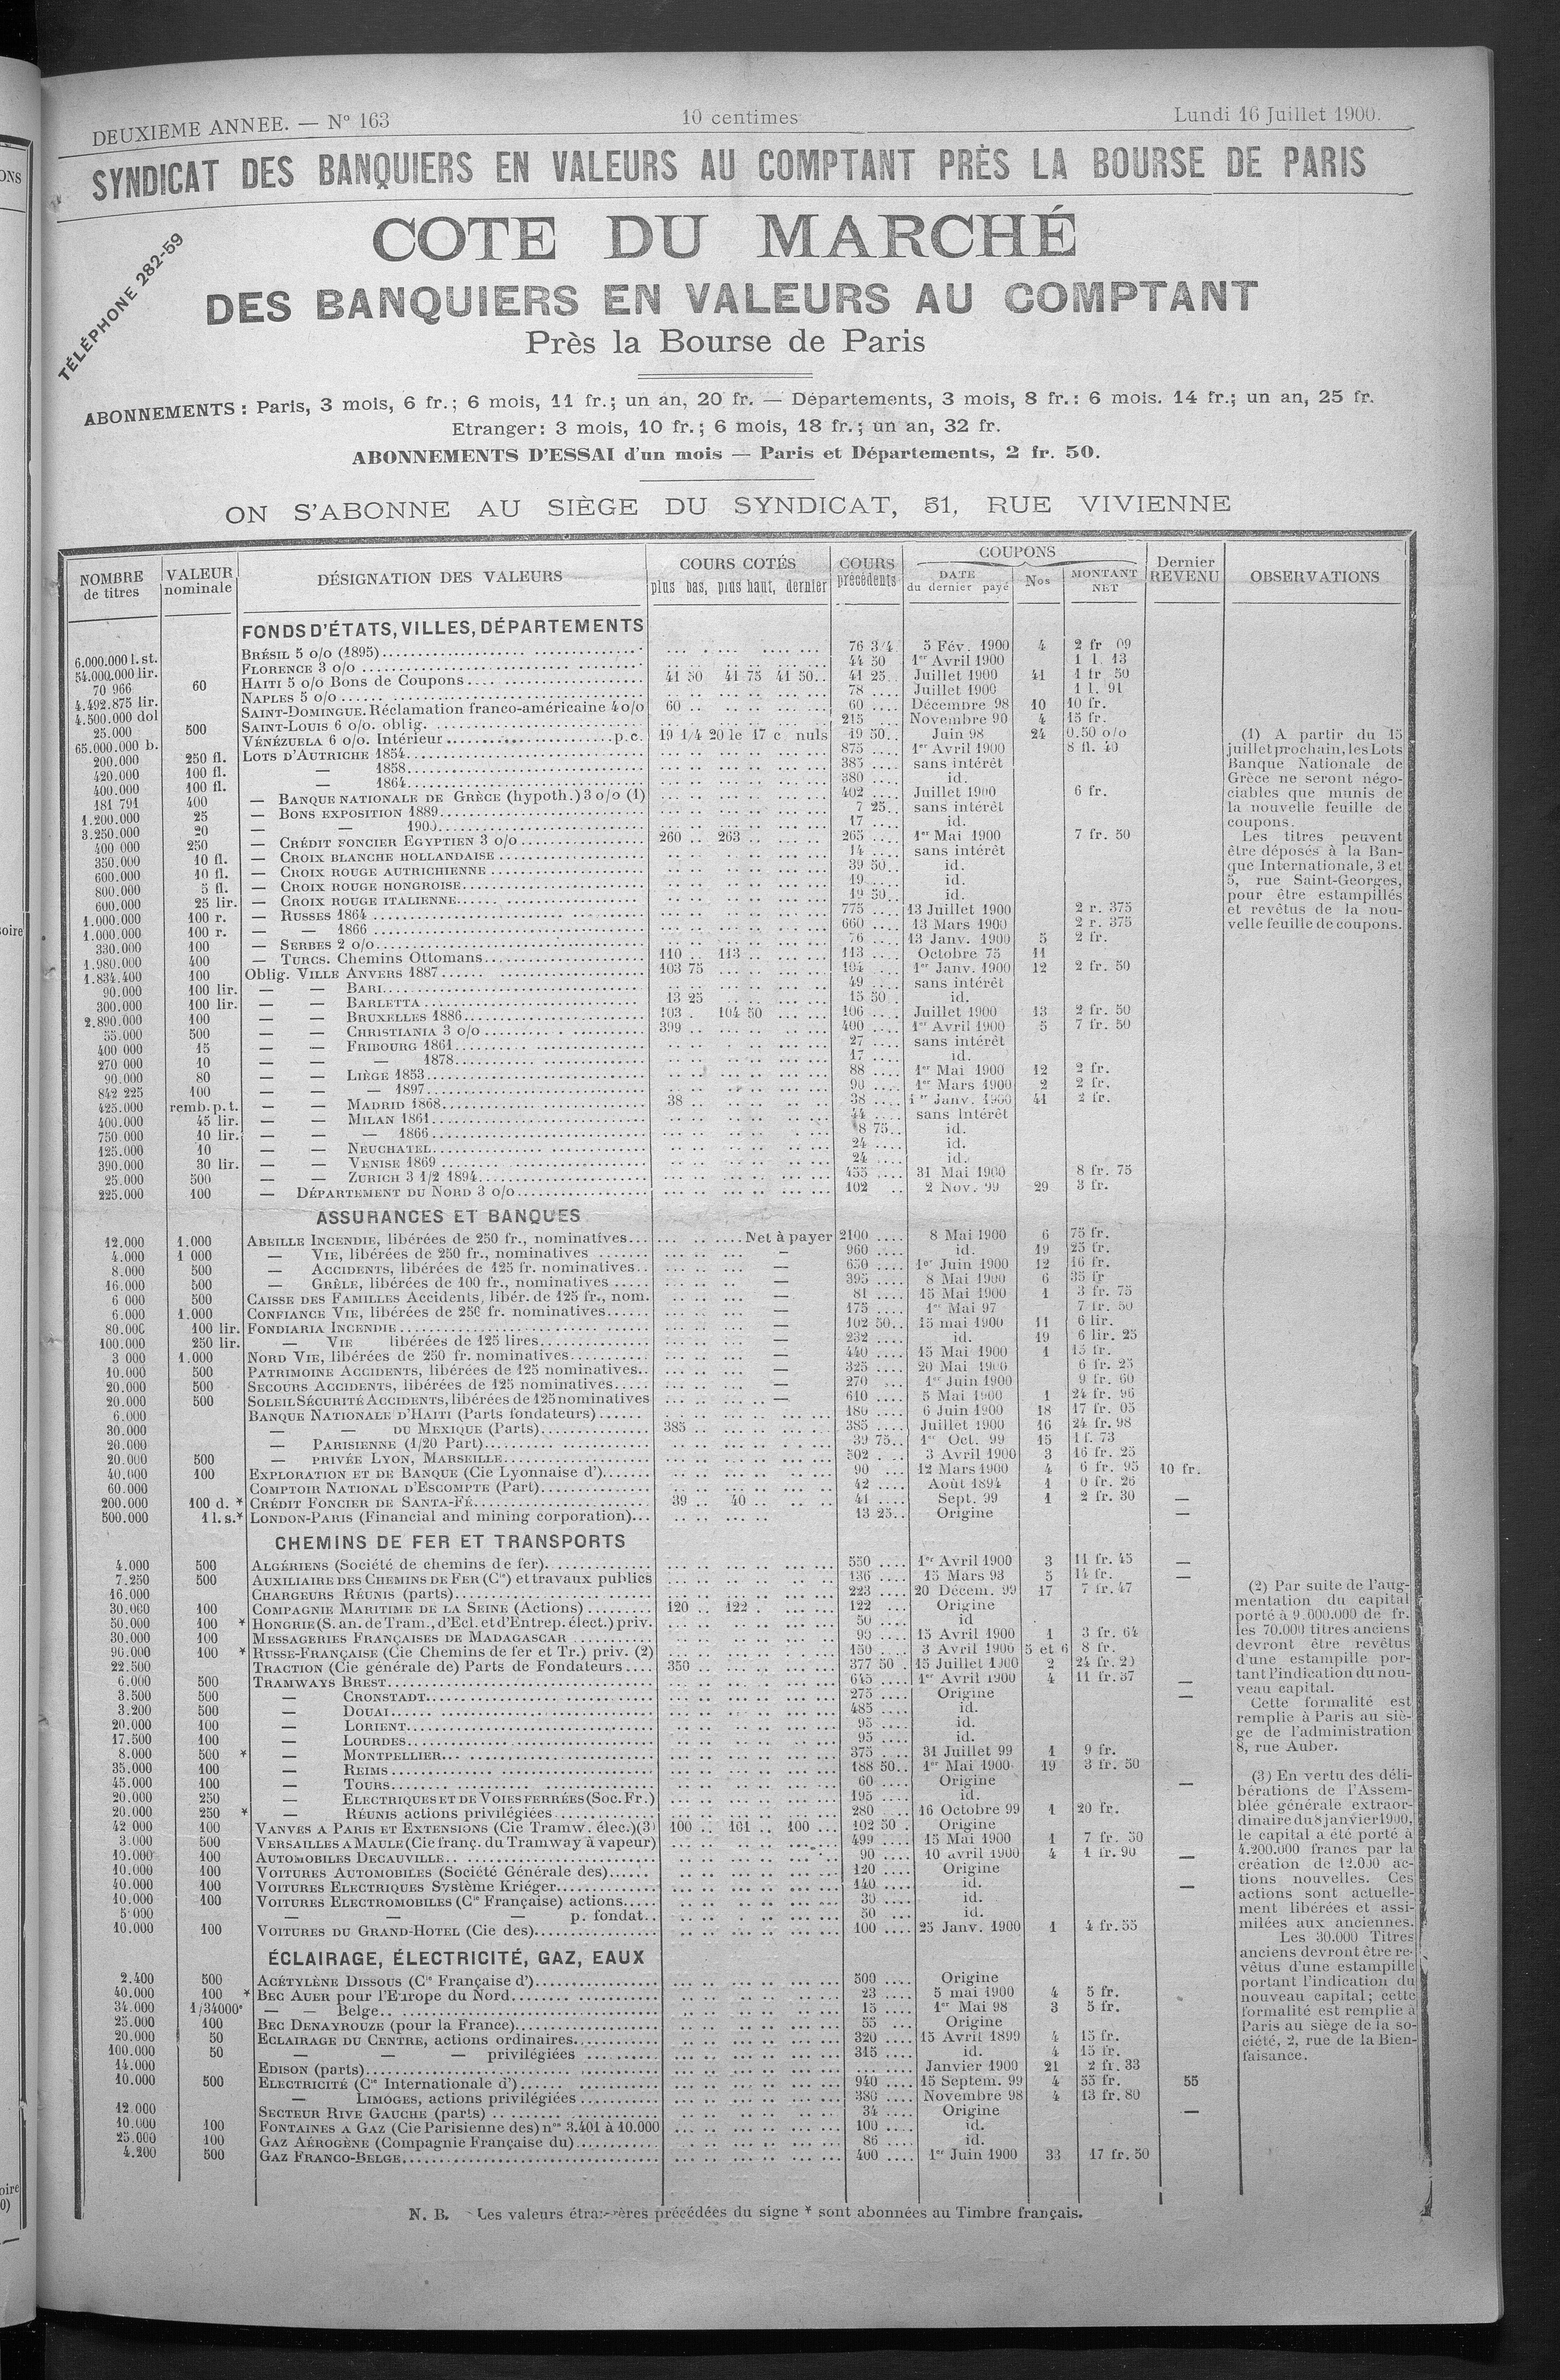 DEUXIEME ANNEE. — N° 163 10 centimes Lundi 16 Juillet 1900.
SYNDICAT DES BANQUIERS EN VALEURS AU COMPTANT PRÈS LA BOURSE DE PARIS
TÉLÉPHONE 282-59
COTE DU MARCHÉ
DES BANQUIERS EN VALEURS AU COMPTANT
Près la Bourse de Paris
ABONNEMENTS : Paris, 3 mois, 6 fr.; 6 mois, 11 fr.; un an, 20 fr. — Départements, 3 mois, 8 fr.: 6 mois. 14 fr.; un an, 25 fr.
Etranger: 3 mois, 10 fr.; 6 mois, 18 fr.; un an, 32 fr.
ABONNEMENTS D'ESSAI d'un mois — Paris et Départements, 2 fr. 50.
ON S'ABONNE AU SIÈGE DU SYNDICAT, 51, RUE VIVIENNE
NOMBRE de titres VALEUR nominale DÉSIGNATION DES VALEURS COURS COTÉS plus bas, plus haut, dernier COURS précédents COUPONS DATE du dernier payé Nos MONTANT NET Dernier REVENU OBSERVATIONS
FONDS D'ÉTATS, VILLES, DÉPARTEMENTS
6.000.000 l. st. BRÉSIL 5 o/o (1895) 76 3/4 5 Fév. 1900 4 2 fr 09
54.000.000 lir. FLORENCE 3 o/o 44 50 1er Avril 1900 1 l. 13
70 966 60 HAITI 5 o/o Bons de Coupons 41 50 41 75 41 50 41 25 Juillet 1900 41 1 fr 50
4.492.875 lir. NAPLES 5 o/o 78 Juillet 1900 1 l. 91
4.500.000 dol SAINT-DOMINGUE. Réclamation franco-américaine 4 o/o 60 60 Décembre 98 10 10 fr.
25.000 500 SAINT-LOUIS 6 o/o. oblig. 215 Novembre 90 4 15 fr.
65.000.000 b. VÉNÉZUELA 6 o/o. Intérieur p.c. 19 1/4 20 le 17 c. nuls 19 50 Juin 98 24 0.50 o/o
200.000 250 fl. LOTS D'AUTRICHE 1854 875 1er Avril 1900 8 fl. 40
420.000 100 fl. — 1858 385 sans intérêt
400.000 100 fl. — 1864 380 id.
181 791 400 — BANQUE NATIONALE DE GRÈCE (hypoth.) 3 o/o (1) 402 Juillet 1900 6 fr.
1.200.000 25 — BONS EXPOSITION 1889 7 25 sans intérêt
3.250.000 20 — — 1900 17 id.
400 000 250 — CRÉDIT FONCIER EGYPTIEN 3 o/o 260 263 265 1er Mai 1900 7 fr. 50
350.000 10 fl. — CROIX BLANCHE HOLLANDAISE 14 sans intérêt
600.000 10 fl. — CROIX ROUGE AUTRICHIENNE 39 50 id.
800.000 5 fl. — CROIX ROUGE HONGROISE 19 id.
600.000 25 lir. — CROIX ROUGE ITALIENNE 19 50 id.
1.000.000 100 r. — RUSSES 1864 775 13 Juillet 1900 2 r. 375
1.000.000 100 r. — — 1866 660 13 Mars 1900 2 r. 375
330.000 100 — SERBES 2 o/o 76 13 Janv. 1900 5 2 fr.
1.980.000 400 — TURCS. Chemins Ottomans 110 113 113 Octobre 75 11
1.834.400 100 Oblig. VILLE ANVERS 1887 103 75 104 1er Janv. 1900 12 2 fr. 50
90.000 100 lir. — — BARI 49 sans intérêt
300.000 100 lir. — — BARLETTA 13 25 15 50 id.
2.890.000 100 — — BRUXELLES 1886 103 104 50 106 Juillet 1900 13 2 fr. 50
55.000 500 — — CHRISTIANIA 3 o/o 399 400 1er Avril 1900 5 7 fr. 50
400 000 15 — — FRIBOURG 1861 27 sans intérêt
270 000 10 — — — 1878 17 id.
90.000 80 — — LIÈGE 1853 88 1er Mai 1900 12 2 fr.
842 225 100 — — — 1897 90 1er Mars 1900 2 2 fr.
425.000 remb. p. t. — — MADRID 1868 38 38 1er Janv. 1900 41 2 fr.
400.000 45 lir. — — MILAN 1861 44 sans Intérêt
750.000 10 lir. — — — 1866 8 75 id.
125.000 10 — — NEUCHATEL 24 id.
390.000 30 lir. — — VENISE 1869 24 id.
25.000 500 — — ZURICH 3 1/2 1894 455 31 Mai 1900 8 fr. 75
225.000 100 — DÉPARTEMENT DU NORD 3 o/o 102 2 Nov. 99 29 3 fr.
ASSURANCES ET BANQUES
12.000 1.000 ABEILLE INCENDIE, libérées de 250 fr., nominatives Net à payer 2100 8 Mai 1900 6 75 fr.
4.000 1 000 — VIE, libérées de 250 fr., nominatives — 960 id. 19 25 fr.
8.000 500 — ACCIDENTS, libérées de 125 fr. nominatives — 650 1er Juin 1900 12 16 fr.
16.000 500 — GRÈLE, libérées de 100 fr., nominatives — 395 8 Mai 1900 6 35 fr
6 000 500 CAISSE DES FAMILLES Accidents, libér. de 125 fr., nom. — 81 15 Mai 1900 1 3 fr. 75
6.000 1.000 CONFIANCE VIE, libérées de 250 fr. nominatives — 175 1er Mai 97 7 fr. 50
80.000 100 lir. FONDIARIA INCENDIE — 102 50 15 mai 1900 11 6 lir.
100.000 250 lir. — VIE libérées de 125 lires — 232 id. 19 6 lir. 25
3 000 1.000 NORD VIE, libérées de 250 fr. nominatives — 440 15 Mai 1900 1 15 fr.
10.000 500 PATRIMOINE ACCIDENTS, libérées de 125 nominatives — 325 20 Mai 1900 6 fr. 25
20.000 500 SECOURS ACCIDENTS, libérées de 125 nominatives — 270 1er Juin 1900 9 fr. 60
20.000 500 SOLEIL SÉCURITÉ ACCIDENTS, libérées de 125 nominatives — 610 5 Mai 1900 1 24 fr. 96
6.000 BANQUE NATIONALE D'HAITI (Parts fondateurs) 180 6 Juin 1900 18 17 fr. 05
30.000 — — DU MEXIQUE (Parts) 385 385 Juillet 1900 16 24 fr. 98
20.000 — PARISIENNE (1/20 Part) 39 75 1er Oct. 99 15 1 f. 73
20.000 500 — PRIVÉE LYON, MARSEILLE 502 3 Avril 1900 3 16 fr. 25
40.000 100 EXPLORATION ET DE BANQUE (Cie Lyonnaise d') 90 12 Mars 1900 4 6 fr. 95 10 fr.
60.000 COMPTOIR NATIONAL D'ESCOMPTE (Part) 42 Août 1894 1 0 fr. 26
200.000 100 d. * CRÉDIT FONCIER DE SANTA-FÉ 39 40 41 Sept. 99 1 2 fr. 30 —
500.000 1 l. s.* LONDON-PARIS (Financial and mining corporation) 13 25 Origine —
CHEMINS DE FER ET TRANSPORTS
4.000 500 ALGÉRIENS (Société de chemins de fer) 550 1er Avril 1900 3 11 fr. 45 —
7.250 500 AUXILIAIRE DES CHEMINS DE FER (Cie) et travaux publics 136 15 Mars 93 5 14 fr. —
16.000 CHARGEURS RÉUNIS (parts) 223 20 Décem. 99 17 7 fr. 47
30.000 100 COMPAGNIE MARITIME DE LA SEINE (Actions) 120 122 122 Origine
50.000 100 * HONGRIE (S. an. de Tram., d'Ecl. et d'Entrep. élect.) priv. 50 id
30.000 100 MESSAGERIES FRANÇAISES DE MADAGASCAR 90 15 Avril 1900 1 3 fr. 64
90.000 100 * RUSSE-FRANÇAISE (Cie Chemins de fer et Tr.) priv. (2) 150 3 Avril 1900 5 et 6 8 fr.
22.500 TRACTION (Cie générale de) Parts de Fondateurs 350 377 50 15 Juillet 1900 2 24 fr. 20
6.000 500 TRAMWAYS BREST 645 1er Avril 1900 4 11 fr. 37 —
3.500 500 — CRONSTADT 275 Origine —
3.200 500 — DOUAI 485 id.
20.000 100 — LORIENT 95 id.
17.500 100 — LOURDES 95 id.
8.000 500 * — MONTPELLIER 375 31 Juillet 99 1 9 fr.
35.000 100 — REIMS 188 50 1er Mai 1900 19 3 fr. 50
45.000 100 — TOURS 60 Origine —
20.000 250 — ELECTRIQUES ET DE VOIES FERRÉES (Soc. Fr.) 195 id.
20.000 250 * — RÉUNIS actions privilégiées 280 16 Octobre 99 1 20 fr.
42 000 100 VANVES A PARIS ET EXTENSIONS (Cie Tramw. élec.) (3) 100 101 100 102 50 Origine
3.000 500 VERSAILLES A MAULE (Cie franç. du Tramway à vapeur) 499 15 Mai 1900 1 7 fr. 50
10.000 100 AUTOMOBILES DECAUVILLE 90 10 avril 1900 4 1 fr. 90 —
10.000 100 VOITURES AUTOMOBILES (Société Générale des) 120 Origine
40.000 100 VOITURES ELECTRIQUES Système Kriéger 140 id. —
10.000 100 VOITURES ELECTROMOBILES (Cie Française) actions 30 id.
5 000 — — — p. fondat. 50 id.
10.000 100 VOITURES DU GRAND-HOTEL (Cie des) 100 25 Janv. 1900 1 4 fr. 55
ÉCLAIRAGE, ÉLECTRICITÉ, GAZ, EAUX
2.400 500 ACÉTYLÈNE DISSOUS (Cie Française d') 500 Origine
40.000 100 * BEC AUER pour l'Europe du Nord 23 5 mai 1900 4 5 fr.
34.000 1/34000e — — Belge 15 1er Mai 98 3 5 fr.
25.000 100 BEC DENAYROUZE (pour la France) 55 Origine
20.000 50 ECLAIRAGE DU CENTRE, actions ordinaires 320 15 Avril 1899 4 15 fr.
100.000 50 — — — privilégiées 315 id. 4 15 fr.
14.000 EDISON (parts) Janvier 1900 21 2 fr. 33
10.000 500 ELECTRICITÉ (Cie Internationale d') 940 15 Septem. 99 4 55 fr. 55
— LIMOGES, actions privilégiées 380 Novembre 98 4 13 fr. 80
12.000 SECTEUR RIVE GAUCHE (parts) 34 Origine —
10.000 100 FONTAINES A GAZ (Cie Parisienne des) nos 3.401 à 10.000 100 id.
25.000 100 GAZ AÉROGÈNE (Compagnie Française du) 86 id.
4.200 500 GAZ FRANCO-BELGE 400 1er Juin 1900 33 17 fr. 50
(1) A partir du 15
juillet prochain, les Lots
Banque Nationale de
Grèce ne seront négo-
ciables que munis de
la nouvelle feuille de
coupons.
Les titres peuvent
être déposés à la Ban-
que Internationale, 3 et
5, rue Saint-Georges,
pour être estampillés
et revêtus de la nou-
velle feuille de coupons.
(2) Par suite de l'aug-
mentation du capital
porté à 9.000.000 de fr.
les 70.000 titres anciens
devront être revêtus
d'une estampille por-
tant l'indication du nou-
veau capital.
Cette formalité est
remplie à Paris au siè-
ge de l'administration
8, rue Auber.
(3) En vertu des déli-
bérations de l'Assem-
blée générale extraor-
dinaire du 8 janvier 1900,
le capital a été porté à
4.200.000 francs par la
création de 12.000 ac-
tions nouvelles. Ces
actions sont actuelle-
ment libérées et assi-
milées aux anciennes.
Les 30.000 Titres
anciens devront être re-
vêtus d'une estampille
portant l'indication du
nouveau capital; cette
formalité est remplie à
Paris au siège de la so-
ciété, 2, rue de la Bien-
faisance.
N. B. Les valeurs étrangères précédées du signe * sont abonnées au Timbre français.